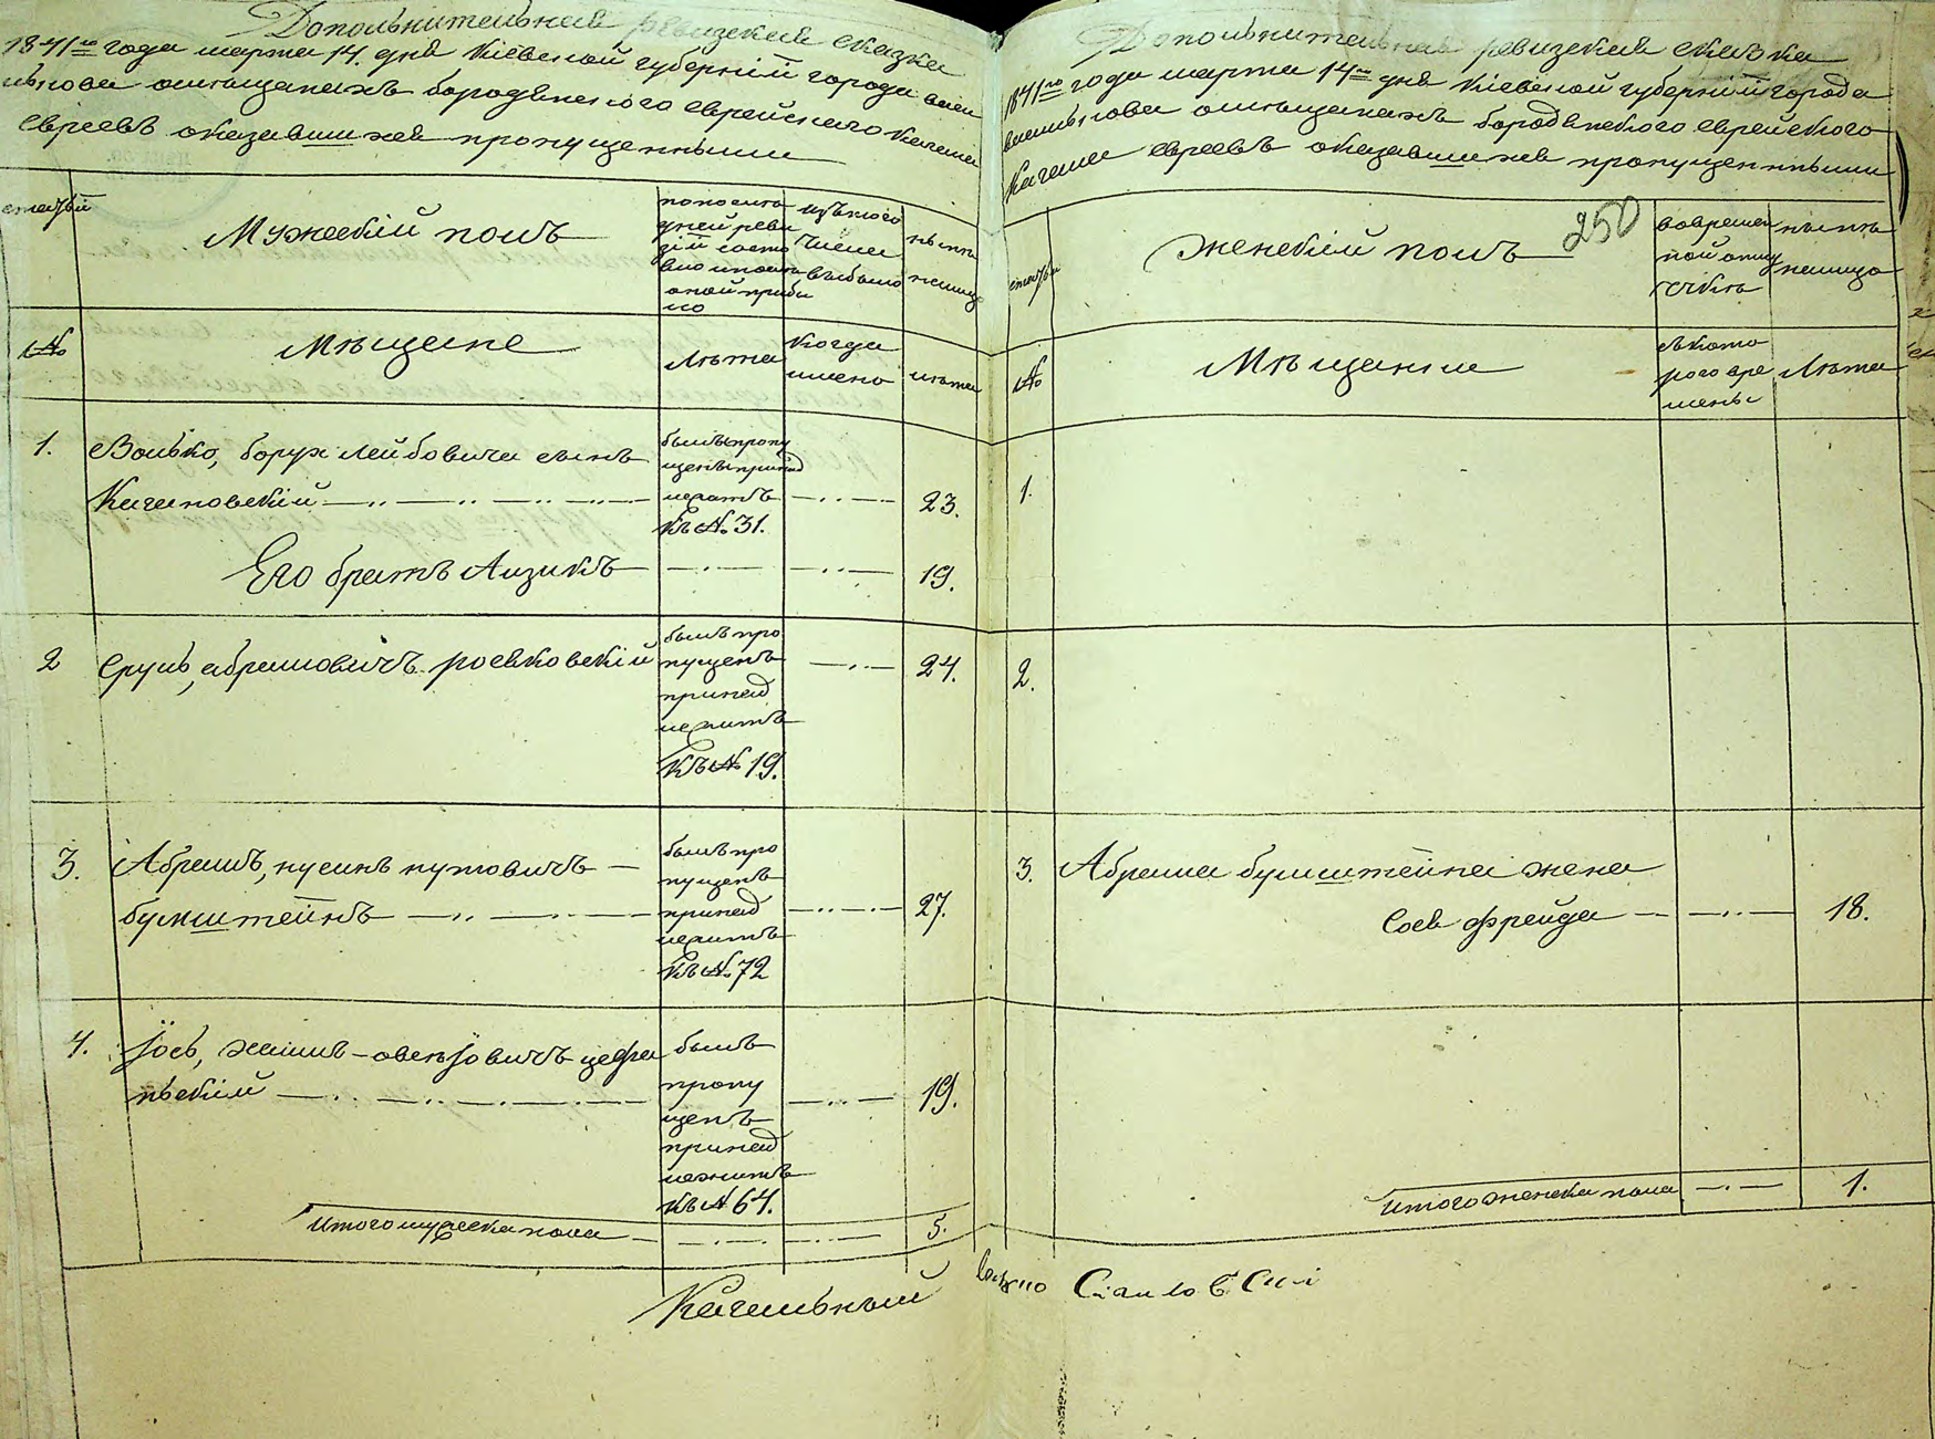 Дополнительная ревизская сказка
1841го года марта 14. дня Киевской губернїи города Васи
лькова омещанахъ бородянского еврейского Кагала
Евреевъ оказавшихся пропущенными
статьи
Мужескій полъ
попослѣ
дней реви
зїи состо
яло ипослѣ
оной прибы
ло
изътого
числа
выбыло
нынѣ
налицо
№
Мѣщане
Лѣта
когда
имено
лѣта
1.
Волько, борух лейбовича сынъ
Кагановскій
былъ пропу
щенъ принад
лежитъ
Къ № 31.
23.
Его братъ Аизикъ
19.
2
Сруль, абрамовичъ росновскій
былъ про
пущенъ
принад
лежитъ
Къ № 19.
24.
3.
Абрамъ, нусинъ нутовичъ
бумштейнъ
былъ про
пущенъ
принад
лежитъ
Къ № 72
27.
4.
Іось, хаимъ-овсейовичъ цефра
нскій
былъ
пропу
щенъ
принад
лежитъ
Къ № 64.
19.
Итого мужеска пола
5.
Кагальный
Дополнительная ревизская сказка
1841го года марта 14го дня Киевской губернїи города
василькова омещанахъ бородянского еврейского
Кагала евреевъ оказавшихся пропущенными
250
статьи
женскій полъ
вовремен
ной отлу
чкѣ
нынѣ
налицо
№
Мѣщанки
съкото
рого вре
мены
Лѣта
1.
2.
3.
Абрама бумштейна жена
Сося фрейда
18.
Итого женска пола
1.